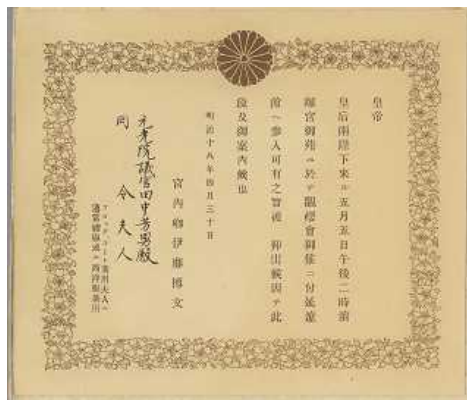 皇帝
皇后兩陛下來ル五月五日午後二時濱
離宮御苑ニ於テ觀櫻會御催ニ付延遼
館ヘ參入可有之旨被 仰出候因テ此
段及御案内候也
明治十八年四月三十日
宮内卿伊藤博文
元老院議官田中芳男殿
同 令夫人
フロックコート着用夫人ハ
通常禮服或ハ西洋服着用